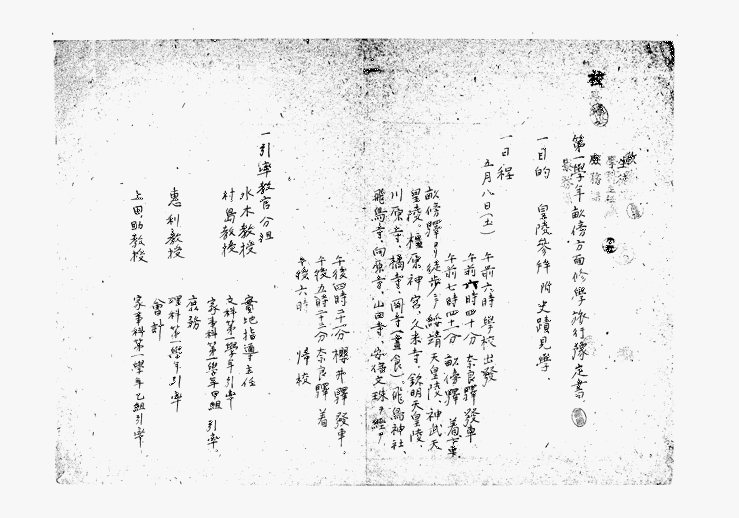 第一學年畝傍方面修學旅行豫定書
一目的　皇陵參拜附史蹟見學.
一日程
五月八日(土)　午前六時　學校出發
午前六時四十分　奈良驛發車
午前七時四十一分　畝傍驛　着下車
畝傍驛ヨリ徒歩ニテ綏靖天皇陵、神武天
皇陵。橿原神宮、久米寺、欽明天皇陵、
川原寺、橘寺、岡寺(晝食)。飛鳥神社、
飛鳥寺、向原寺、山田寺、安倍文珠ヲ經テ
午後四時二十一分　櫻井驛發車。
午後五時二十三分　奈良驛　着
午後六時　歸校
一引率教官分組
水木教授　實地指導主任
文科第一學年引率
村島教授　家事科第一學年甲組引率.
庶務
惠利教授　理科第一學年引率
會計
上田助教授　家事科第一學年乙組引率.